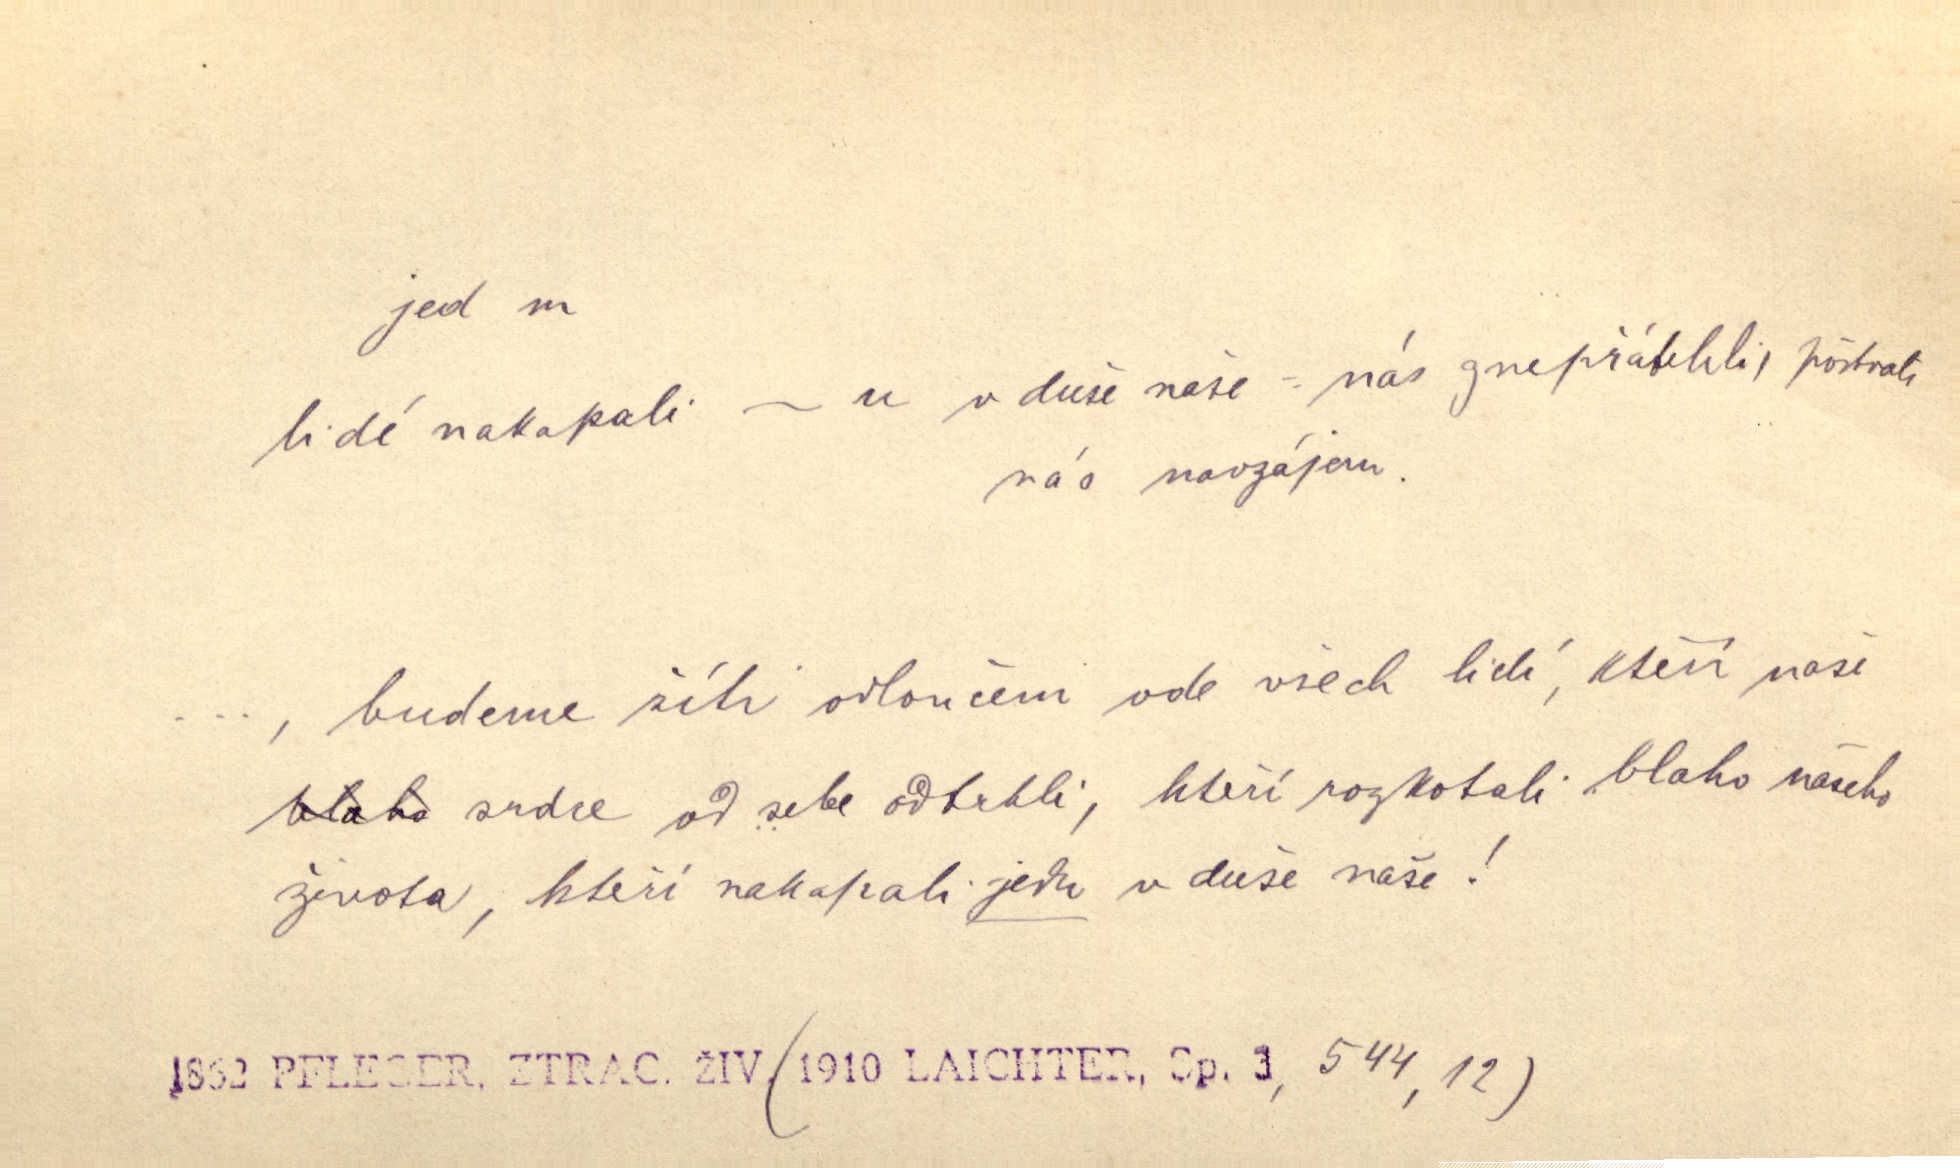 jed m
lidé nakapali ~ u v duše naše = nás znepřátelili, poštvali
nás navzájem.
..., budeme žíti odloučeni ode všech lidí, kteří naše
blaho srdce od sebe odtrhli, kteří rozkotali blaho našeho
života, kteří nakapali jedu v duše naše!
1862 PFLEGER, ZTRAC. ŽIV. (1910 LAICHTER, Sp. 3, 544, 12)